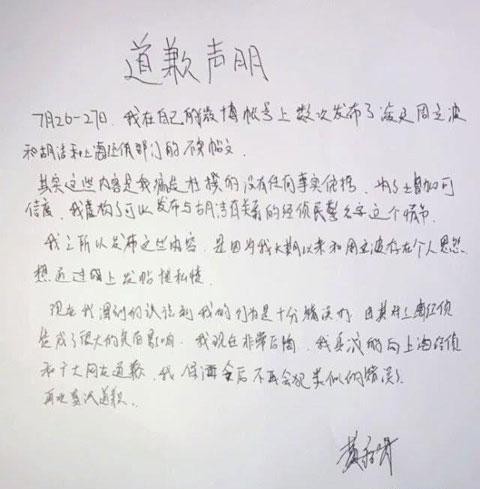 道歉声明
7月26-27日,我在自己的微博帐号上数次发布了涉及周立波
和胡洁和上海经侦部门的不实帖文。
其实这些内容是我编造杜撰的没有任何事实依据,为了增加可
信度,我虚构了可以发布与胡洁有关系的经侦民警名字这个情节。
我之所以发布这些内容,是因为我长期以来和周立波存在个人恩怨,
想通过网上发帖泄私愤。
现在我深刻的认识到我的行为是十分错误的,因其对上海经侦
造成了很大的负面影响。我现在非常后悔,我真诚的向上海经侦
和广大网友道歉,我保证今后不再会犯类似的错误。
再次真诚道歉。